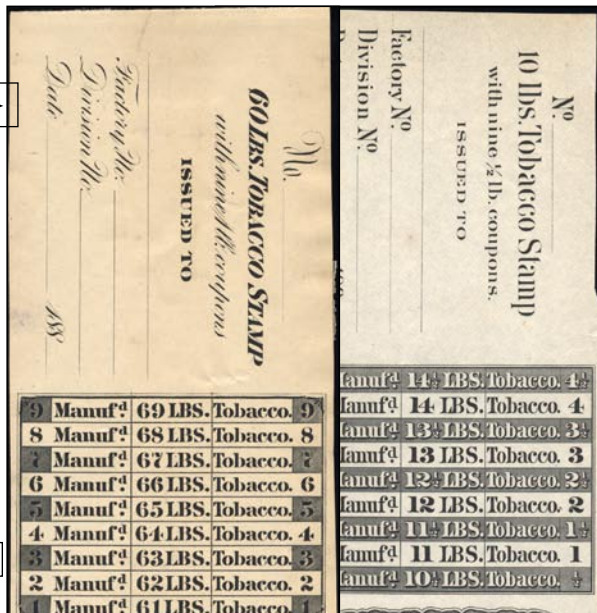 No.
60 LBS. TOBACCO STAMP
with nine 1 lb. coupons
ISSUED TO
Factory No.
Division No.
Date 188
9 Manuf'd 69 LBS. Tobacco. 9
8 Manuf'd 68 LBS. Tobacco. 8
7 Manuf'd 67 LBS. Tobacco. 7
6 Manuf'd 66 LBS. Tobacco. 6
5 Manuf'd 65 LBS. Tobacco. 5
4 Manuf'd 64 LBS. Tobacco. 4
3 Manuf'd 63 LBS. Tobacco. 3
2 Manuf'd 62 LBS. Tobacco. 2
1 Manuf'd 61 LBS. Tobacco. 1
Nº
10 lbs. Tobacco Stamp
with nine ½ lb. coupons.
ISSUED TO
Factory Nº
Division Nº
Manuf'd 14½ LBS. Tobacco. 4½
Manuf'd 14 LBS. Tobacco. 4
Manuf'd 13½ LBS. Tobacco. 3½
Manuf'd 13 LBS. Tobacco. 3
Manuf'd 12½ LBS. Tobacco. 2½
Manuf'd 12 LBS. Tobacco. 2
Manuf'd 11½ LBS. Tobacco. 1½
Manuf'd 11 LBS. Tobacco. 1
Manuf'd 10½ LBS. Tobacco. ½